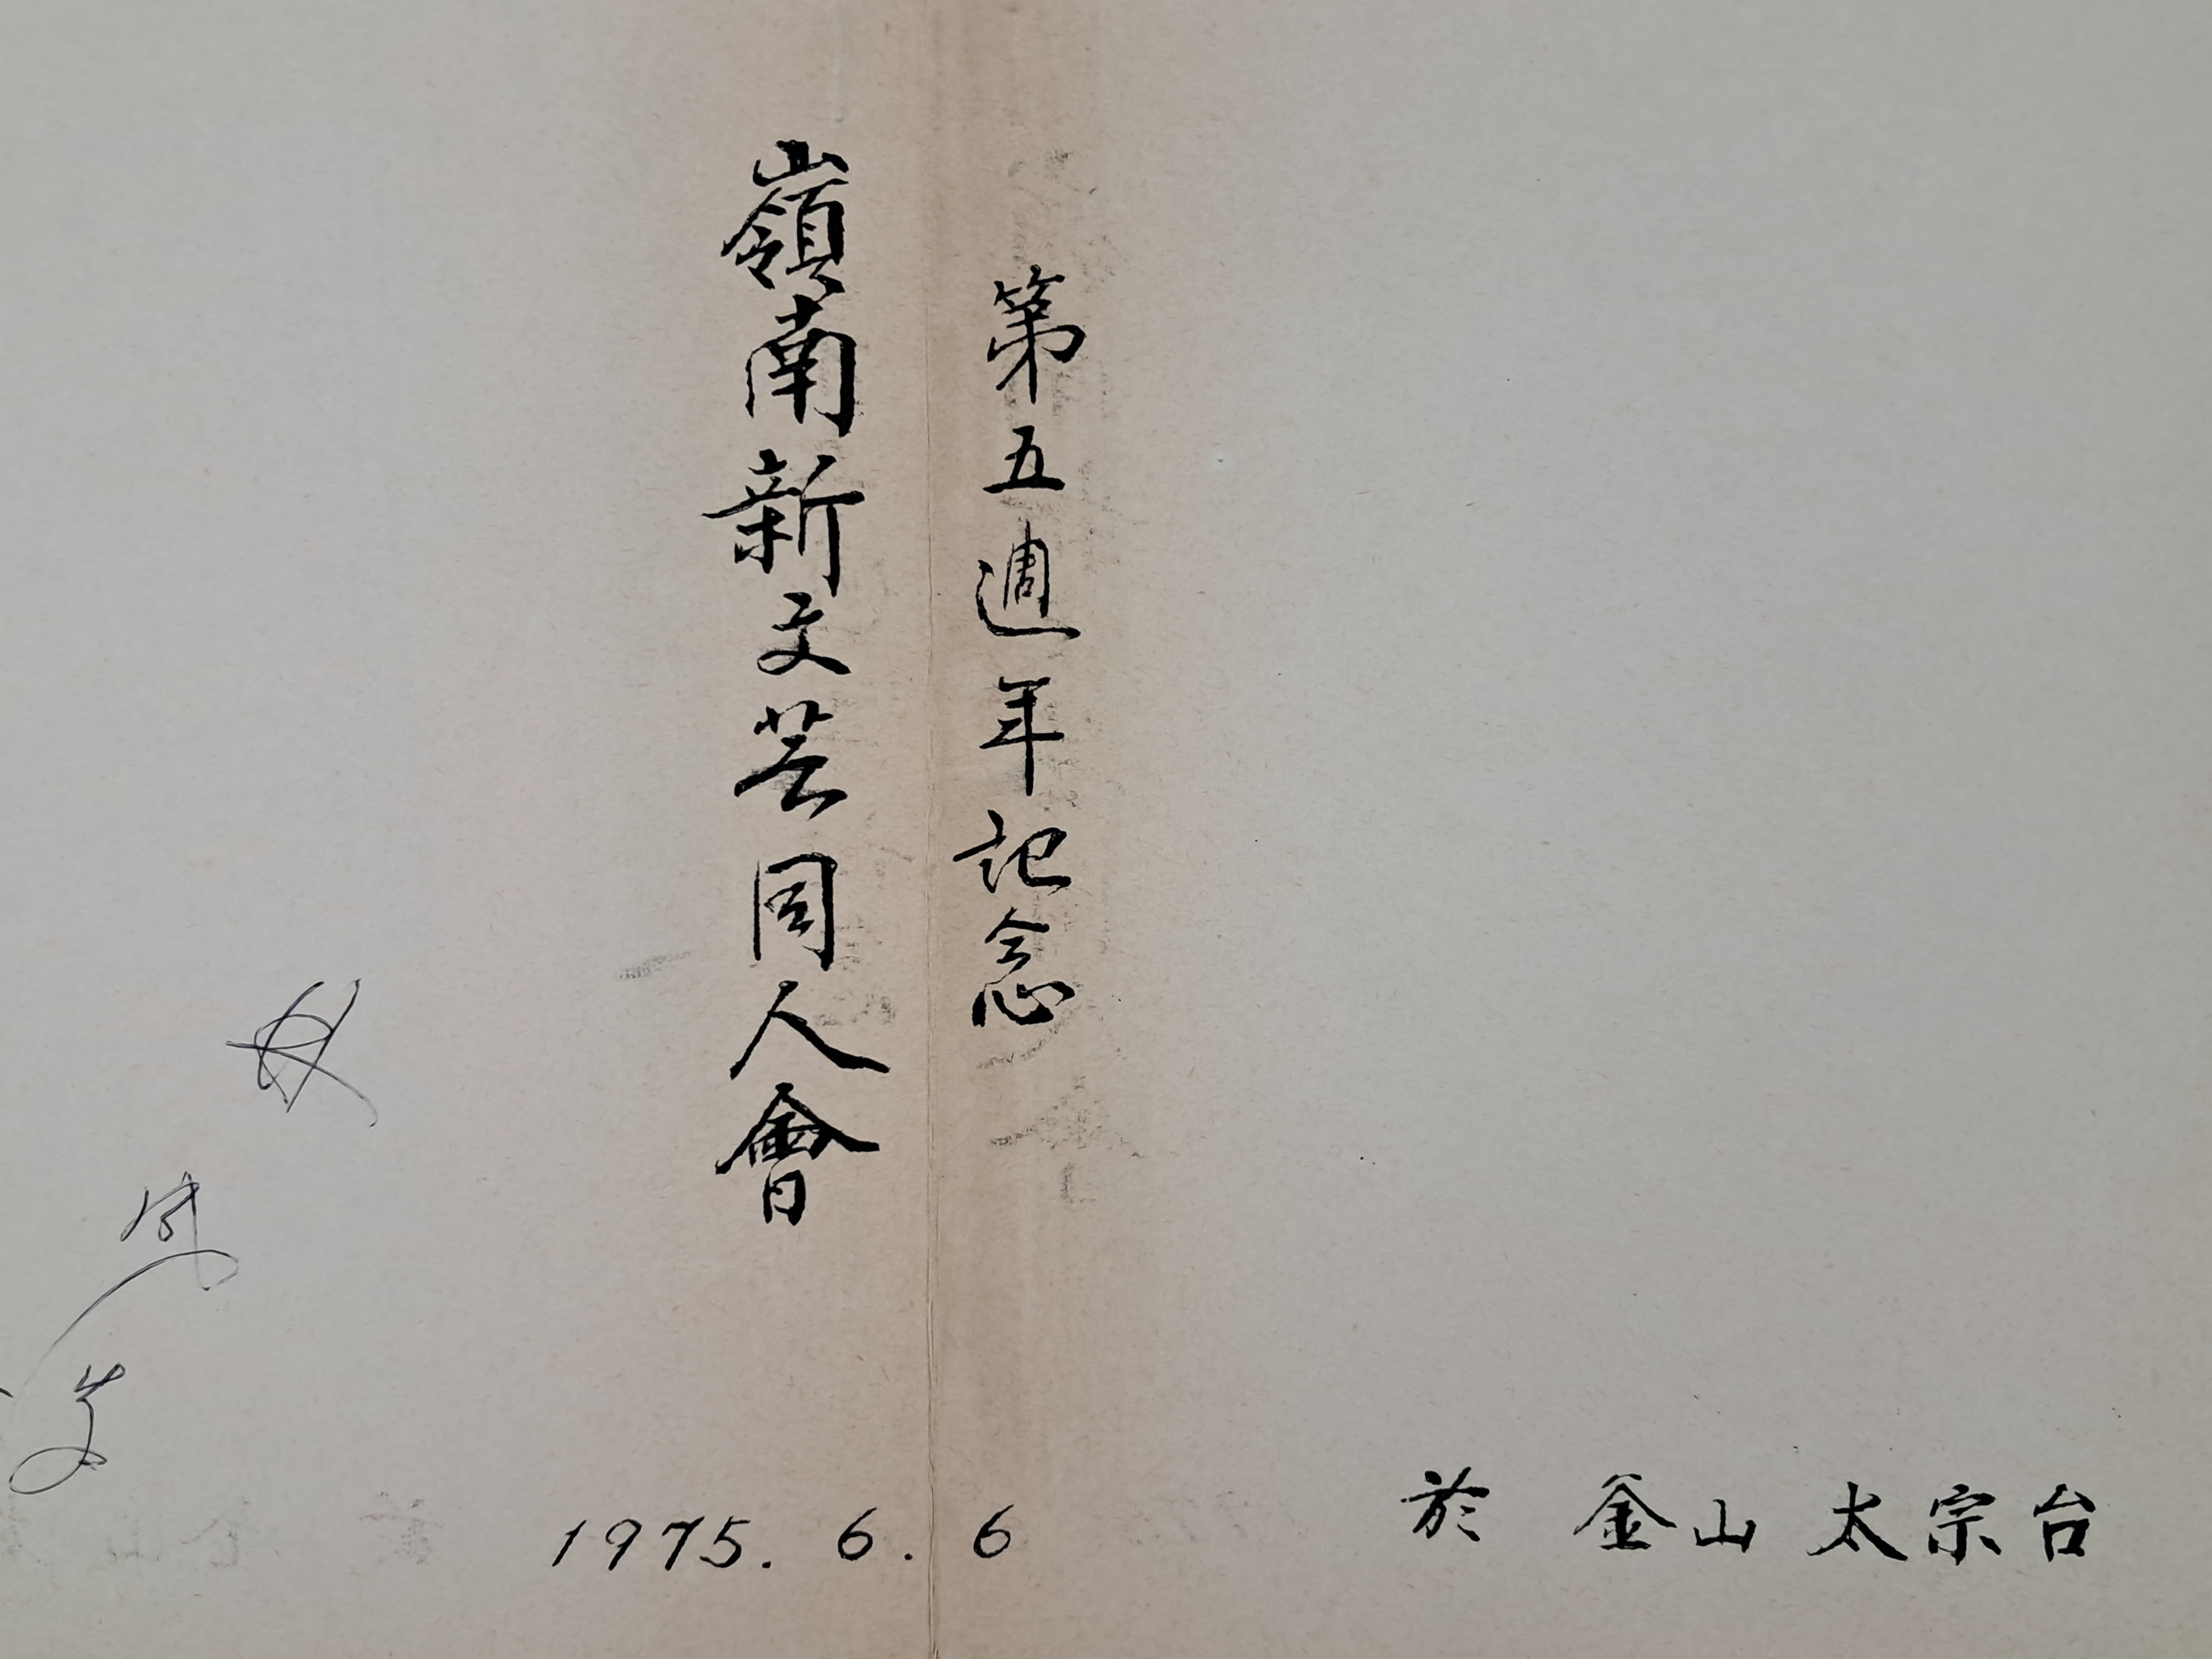 第五週年記念
嶺南新文芸同人會
1975. 6. 6
於 釜山 太宗台